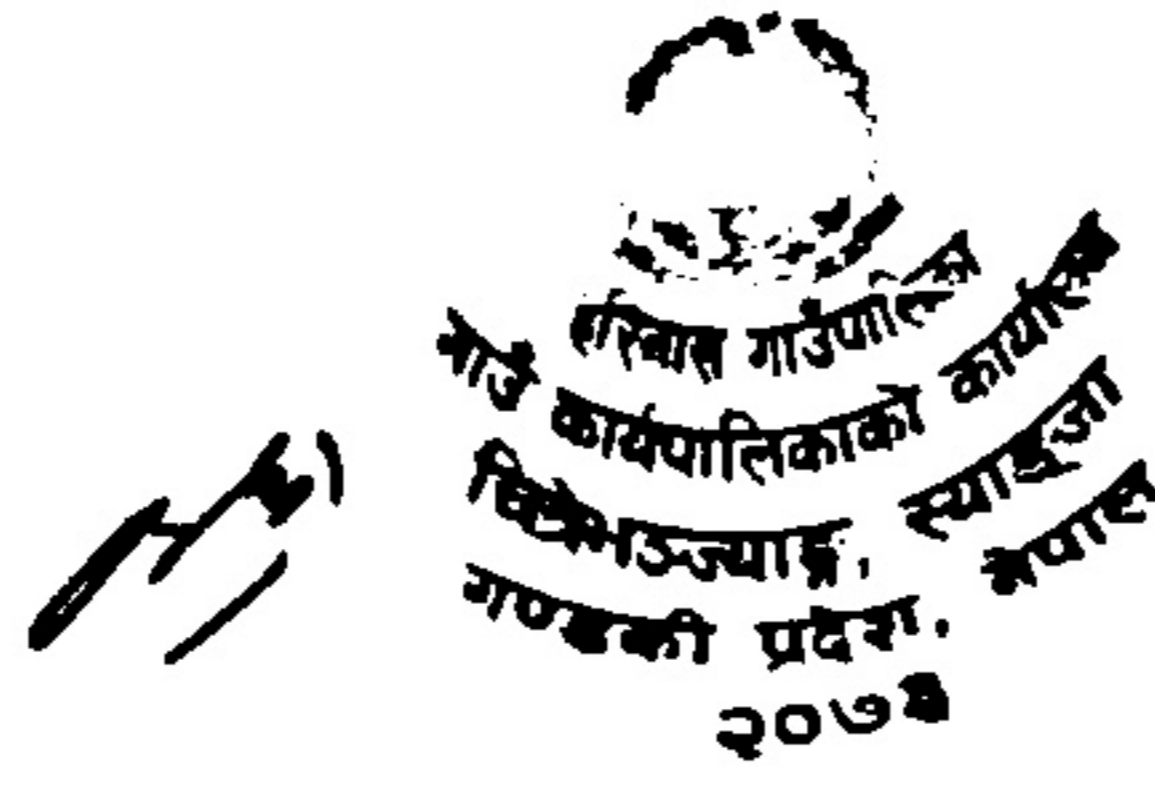 हरिनास गाउँपालिका
गाउँ कार्यपालिकाको कार्यालय
चित्रेभञ्ज्याङ्ग, स्याङ्जा
गण्डकी प्रदेश, नेपाल
२०७३